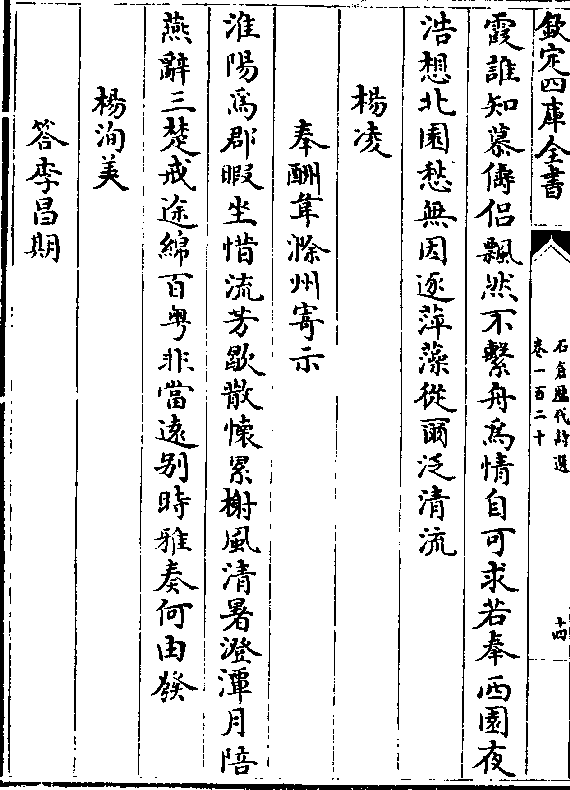 欽定四庫全書
石倉歷代詩選
卷一百二十
十四
霞誰知慕儔侣飄然不繫舟為情自可求若奉西園夜
浩想北園愁無因逐萍藻從爾泛清流
楊凌
奉酬韋滁州寄示
淮陽為郡暇坐惜流芳歇散懷累榭風清暑澄潭月陪
燕辭三楚戒途綿百粤非當遠别時雅奏何由發
楊洵美
答李昌期